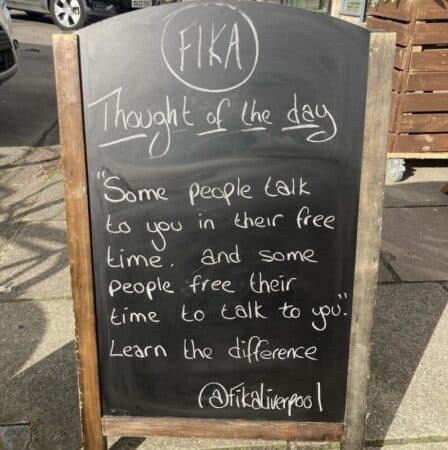 FIKA
Thought of the day
"Some people talk
to you in their free
time. and some
people free their
time to talk to you".
Learn the difference
@fikaliverpool